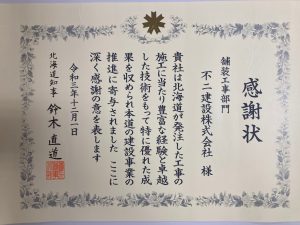 感謝状
舗装工事部門
不二建設株式会社 様
貴社は北海道が発注した工事の
施工に当たり豊富な経験と卓越
した技術をもって特に優れた成
果を収められ本道の建設事業の
推進に寄与されました ここに
深く感謝の意を表します
令和三年十二月一日
北海道知事 鈴木直道